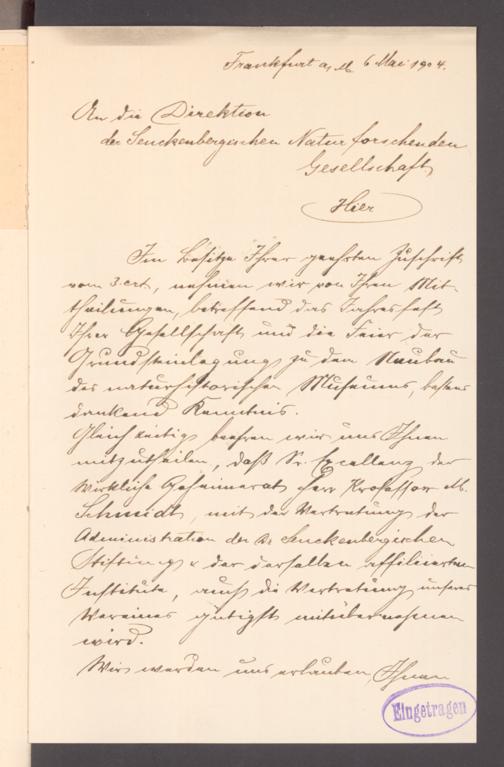 Frankfurt a/M 6 Mai 1904.
An die Direktion
der Senckenbergischen Naturforschenden
Gesellschaft
Hier
Im Besitze Ihrer geehrten Zuschrift
vom 3. crt, nehmen wir von Ihren Mit-
theilungen, betreffend das Jahresfest
Ihrer Gesellschaft und die Feier der
Grundsteinlegung zu dem Neubau
des naturhistorischen Museums, bestens
dankend Kenntnis.
Gleichzeitig beehren wir uns Ihnen
mitzutheilen, daß Sr. Excellenz der
Wirkliche Geheimerat Herr Professor M.
Schmidt, mit der Vertretung der
Administration der Dr Senckenbergischen
Stiftung u der derselben affiliierten
Institute, auch die Vertretung unseres
Vereines gütigst mitübernehmen
wird.
Wir werden uns erlauben, Ihnen
Eingetragen